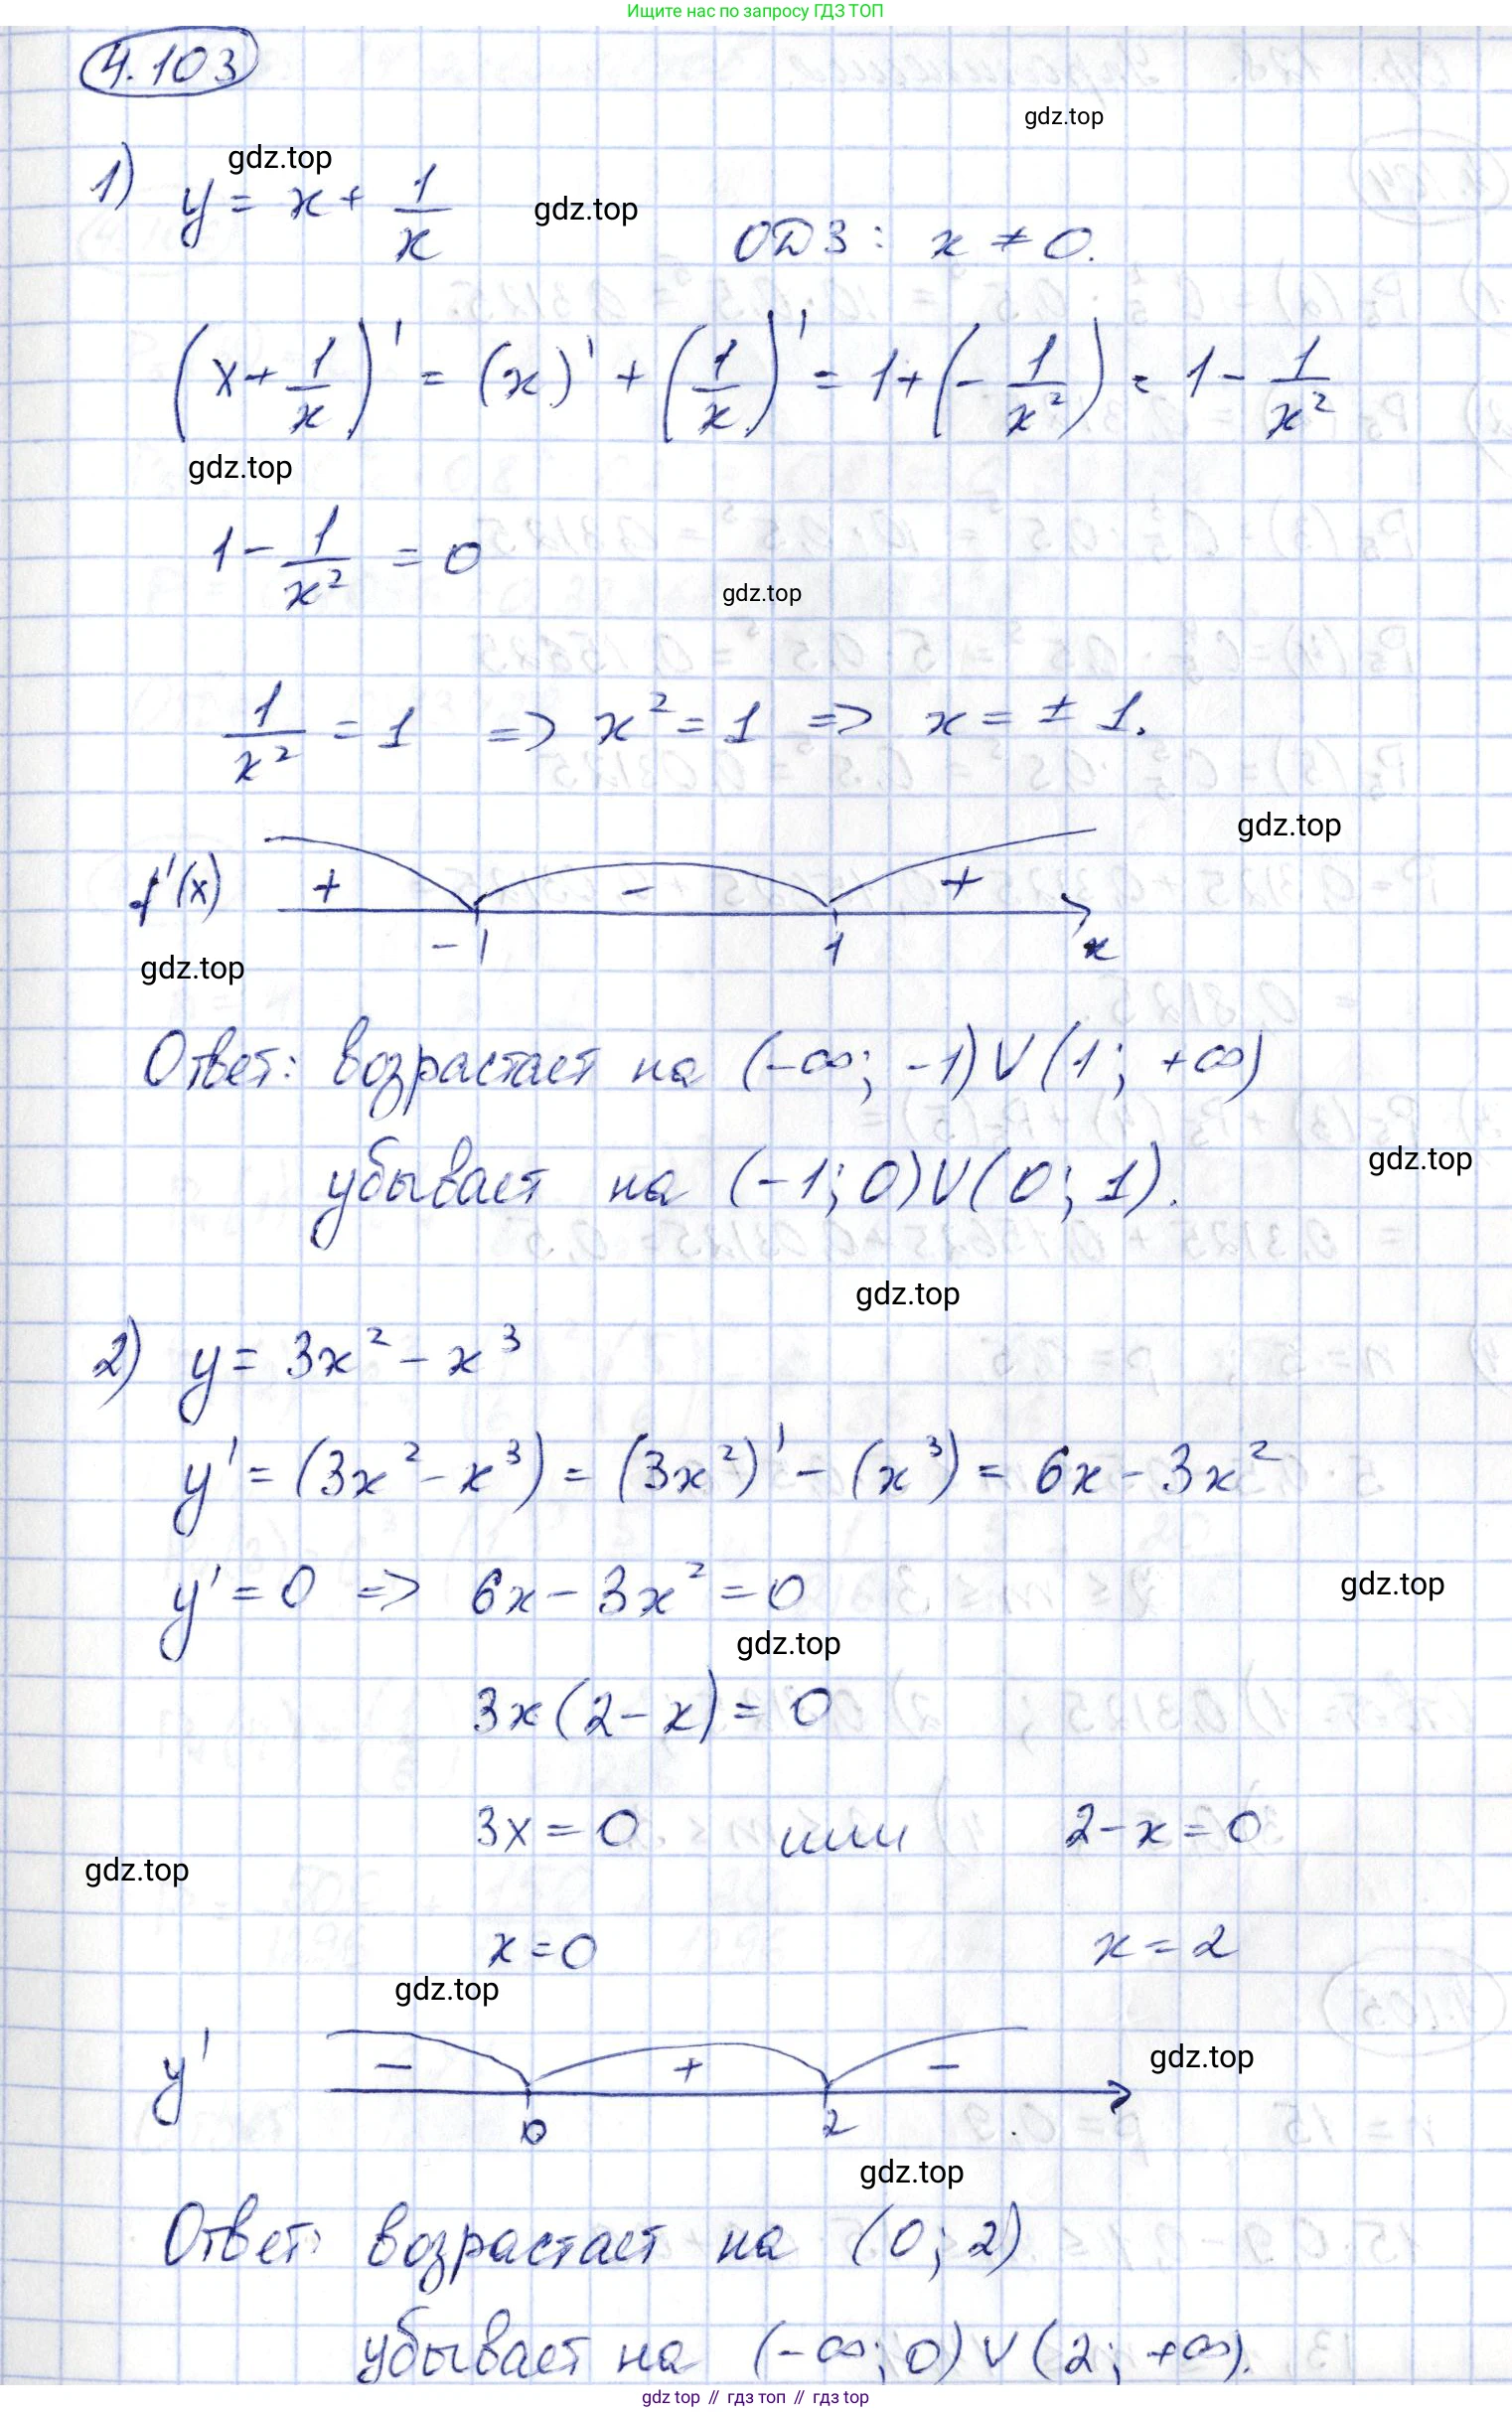 Ищите нас по запросу ГДЗ ТОП
4.103
gdz.top
gdz.top
1) y = x + 1/x
gdz.top
ОДЗ: x ≠ 0.
(x + 1/x)' = (x)' + (1/x)' = 1 + (- 1/x²) = 1 - 1/x²
gdz.top
1 - 1/x² = 0
gdz.top
1/x² = 1 => x² = 1 => x = ± 1.
gdz.top
f'(x) + - +
-1 1 x
gdz.top
Ответ: возрастает на (-∞; -1) ∪ (1; +∞)
убывает на (-1; 0) ∪ (0; 1).
gdz.top
gdz.top
2) y = 3x² - x³
y' = (3x² - x³) = (3x²)' - (x³) = 6x - 3x²
y' = 0 => 6x - 3x² = 0
gdz.top
gdz.top
3x (2 - x) = 0
3x = 0 или 2 - x = 0
gdz.top
x = 0 x = 2
gdz.top
y' - + -
gdz.top
0 2
gdz.top
Ответ: возрастает на (0; 2)
убывает на (-∞; 0) ∪ (2; +∞).
gdz top // гдз топ // гдз top